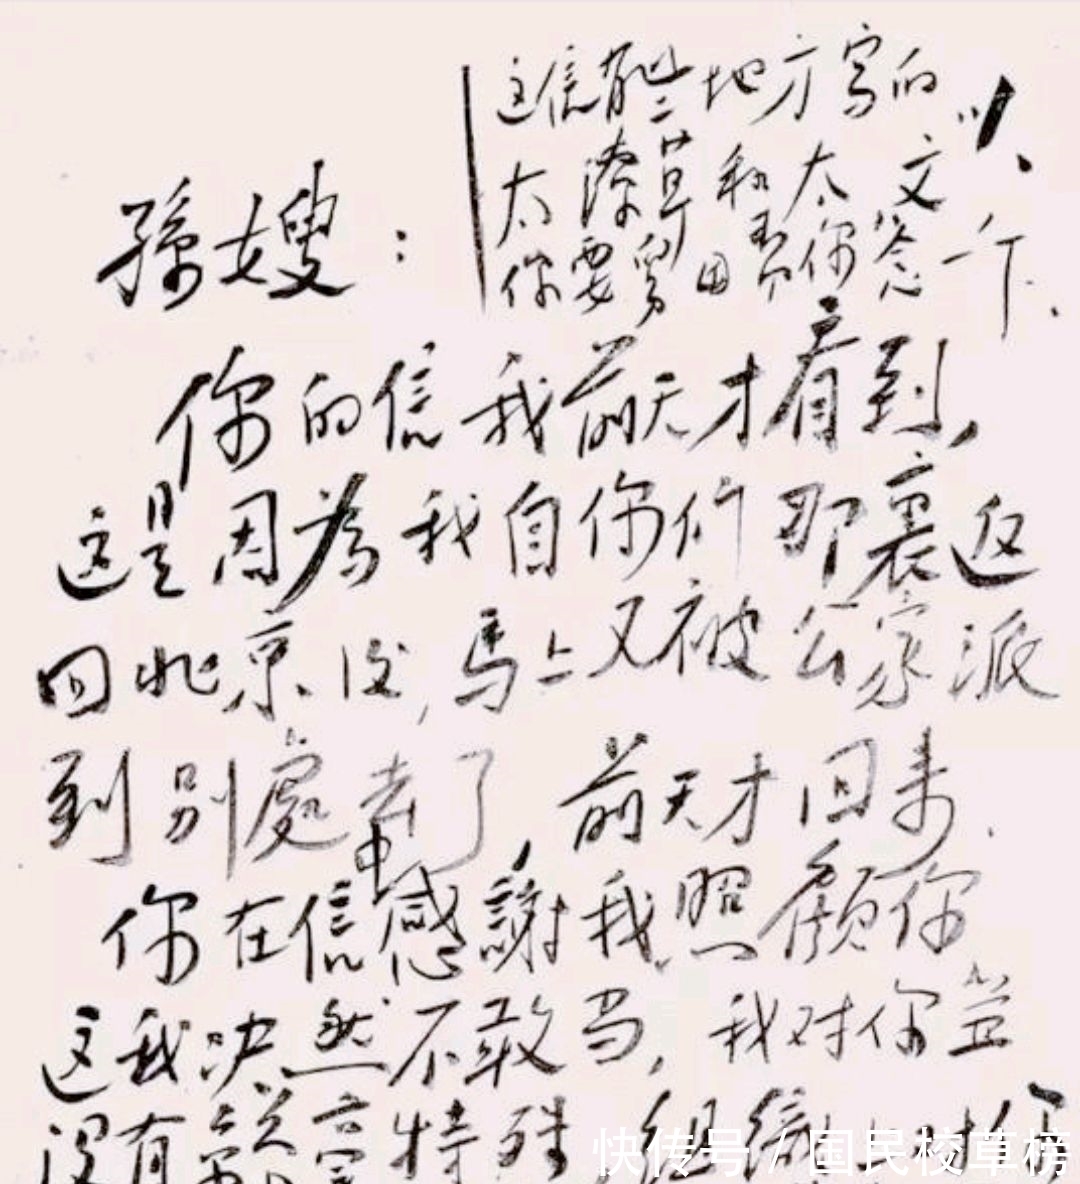 这信有些地方写的
太潦草和太文
你要舅 你念一下.
孫嫂:
你的信我前天才看到,
这是因为我自你们那裏返
回北京后,馬上又被公家派
到别處去了,前天才回来.
你在信中感謝我照顧你
这我决然不敢当,我对你並
没有 特殊
快传号/国民校草榜